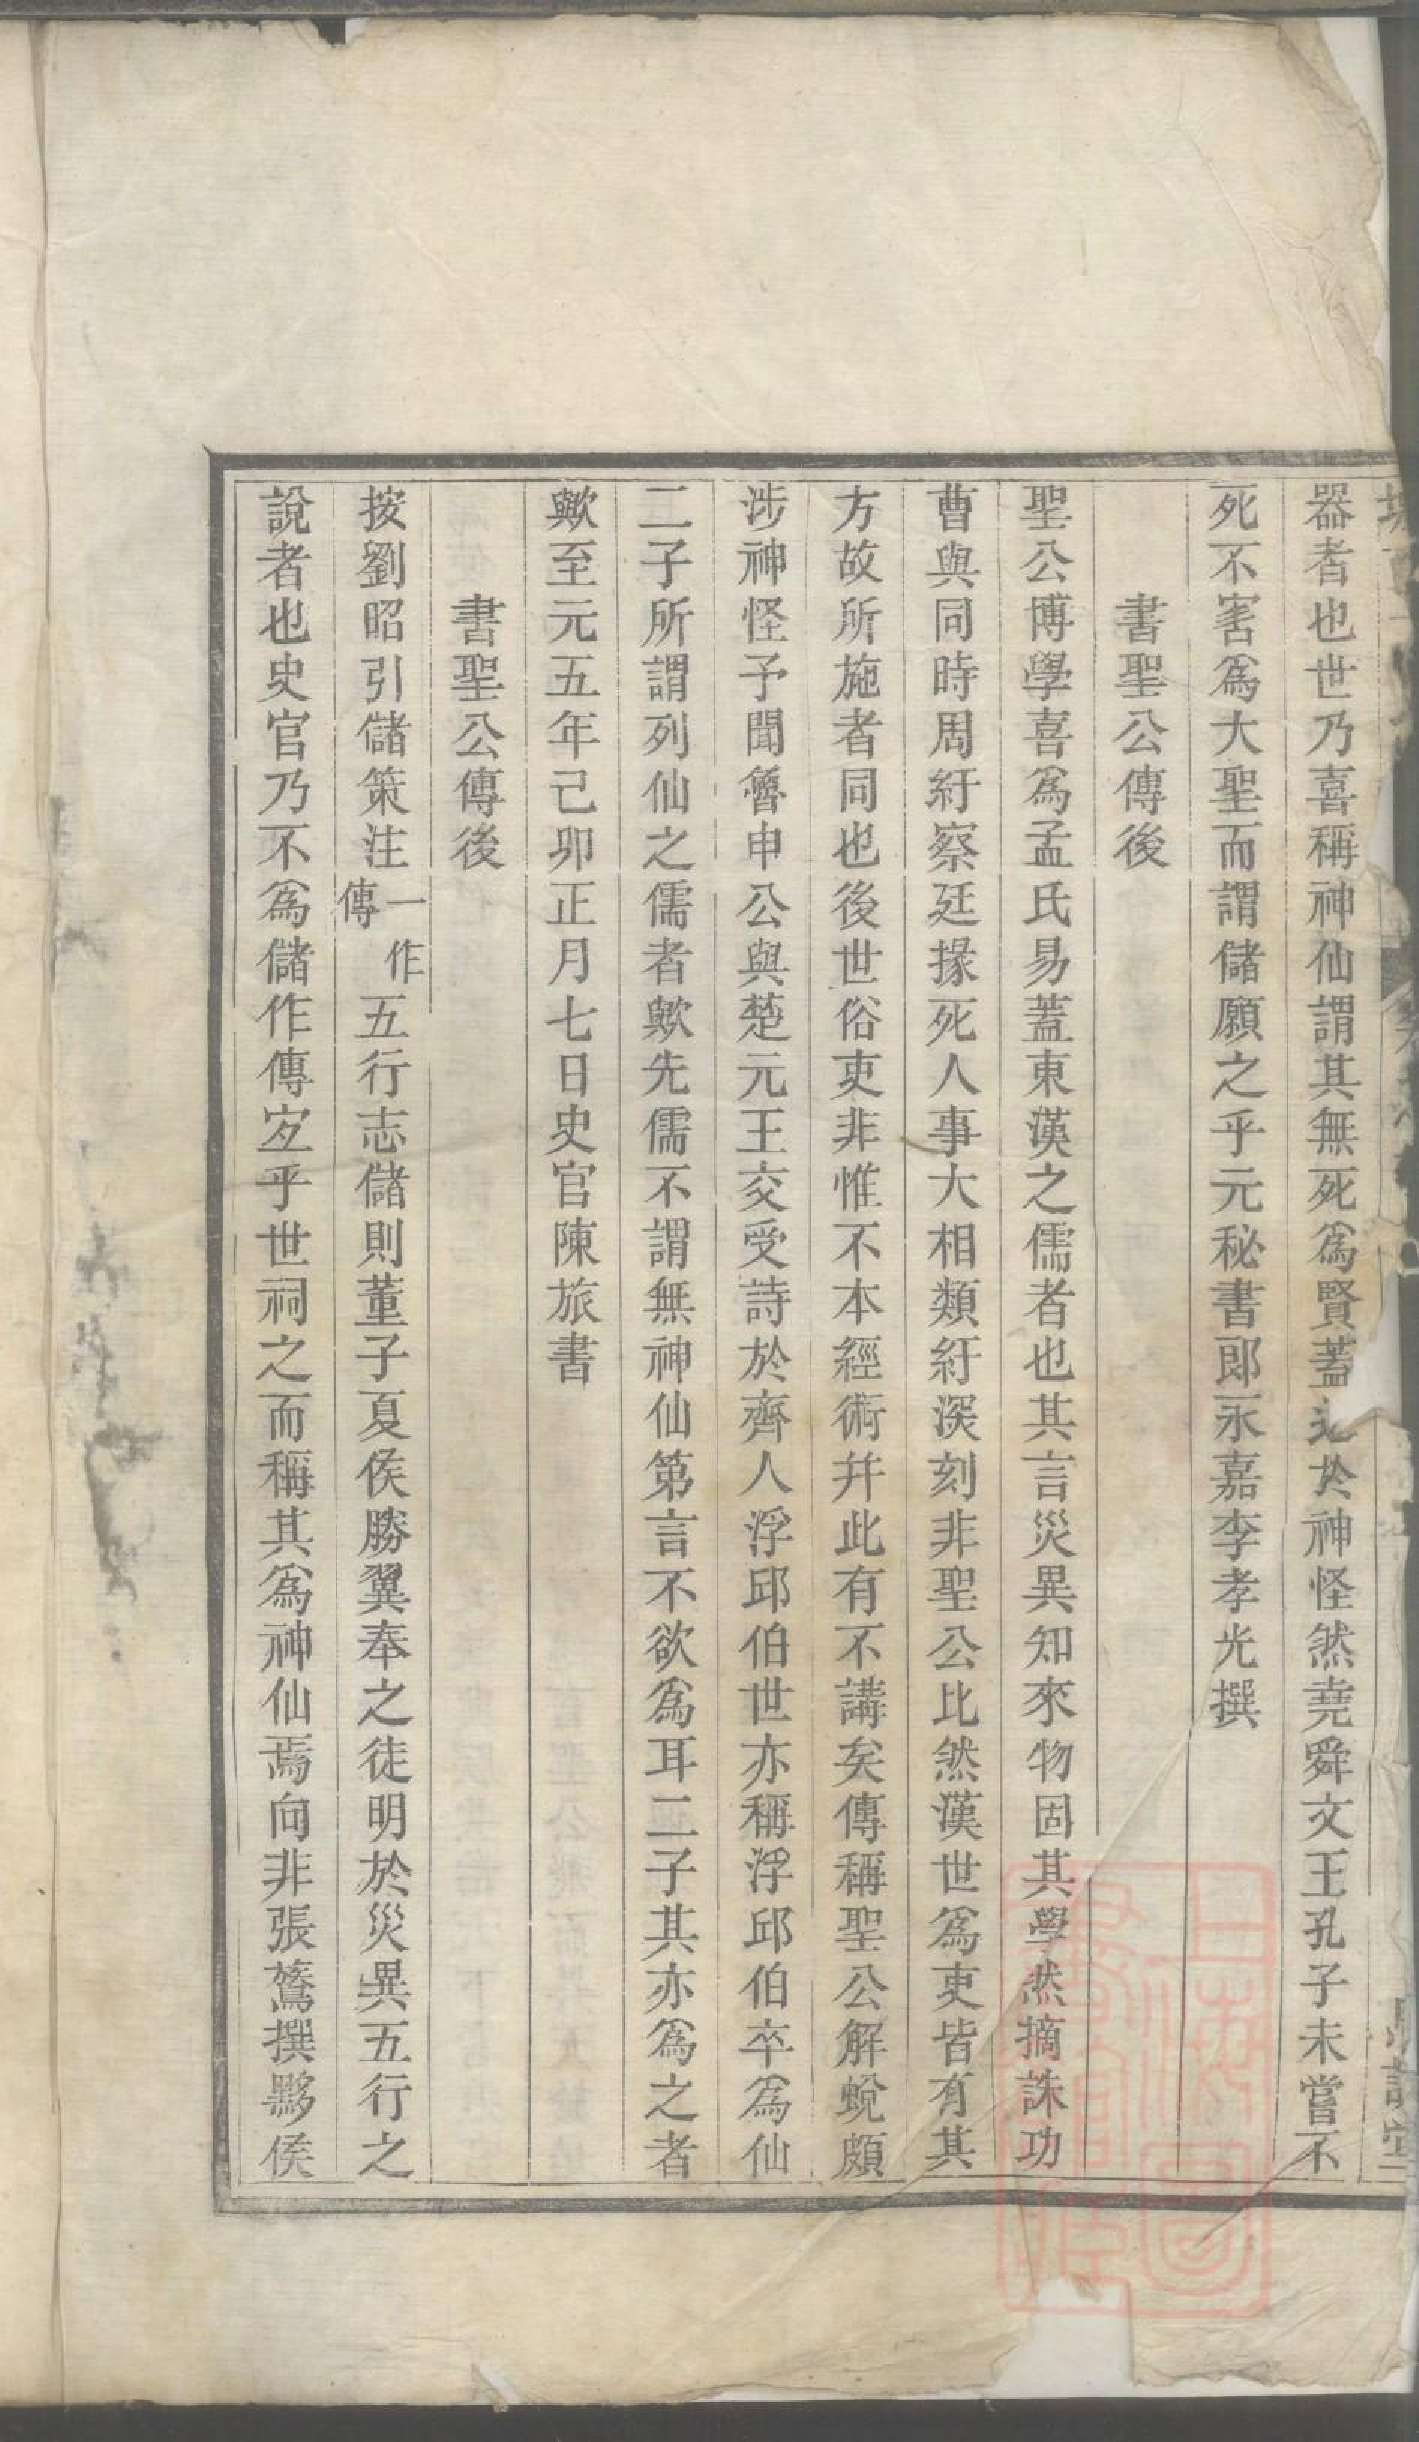 器者也世乃喜稱神仙謂其無死爲賢蓋近於神怪然堯舜文王孔子未嘗不
死不害爲大聖而謂儲願之乎元秘書郎永嘉李孝光撰
書聖公傳後
聖公博學喜爲孟氏易蓋東漢之儒者也其言災異知來物固其學然摘誅功
曹與同時周紆察廷掾死人事大相類紆深刻非聖公比然漢世爲吏皆有其
方故所施者同也後世俗吏非惟不本經術幷此有不講矣傳稱聖公解蛻頗
涉神怪予聞魯申公與楚元王交受詩於齊人浮邱伯世亦稱浮邱伯卒爲仙
二子所謂列仙之儒者歟先儒不謂無神仙第言不欲爲耳二子其亦爲之者
歟至元五年己卯正月七日史官陳旅書
書聖公傳後
按劉昭引儲策注一作傳五行志儲則董子夏侯勝翼奉之徒明於災異五行之
說者也史官乃不爲儲作傳宜乎世祠之而稱其爲神仙焉向非張鷟撰黟侯